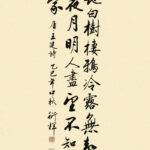 地白樹棲鴉冷露無
夜月明人盡望不知
家 唐王建詩 乙巳年中秋